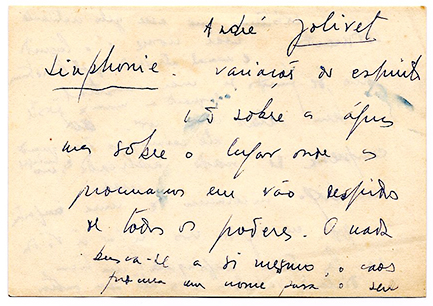 André Jolivet
Sinphonie. variações do espírito
não sobre a água
mas sobre o lugar onde as
procuramos em vão despido
de todos os poderes. O nada
busca-se a si mesmo, o caos
procura um nome para o seu